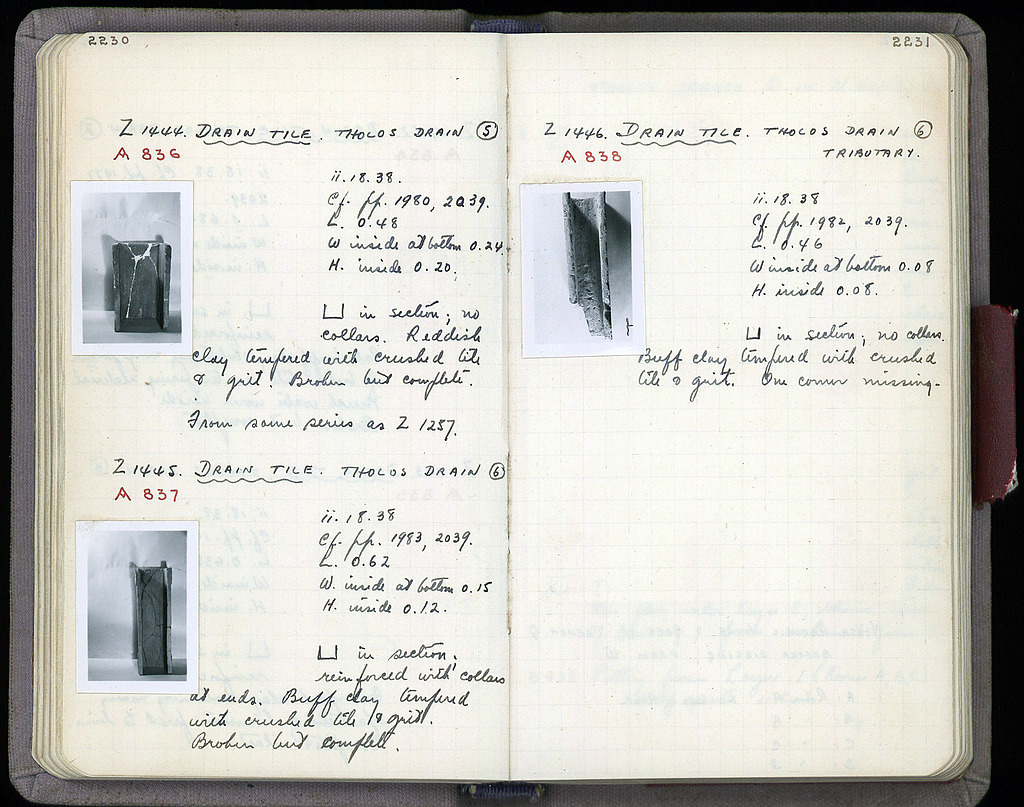 2230
Z 1444. DRAIN TILE. THOLOS DRAIN ⑤
A 836
ii.18.38.
Cf. pp. 1980, 2039.
L. 0.48
W inside at bottom 0.24
H. inside 0.20.
⊔ in section; no
collars. Reddish
clay tempered with crushed tile
& grit. Broken but complete.
From same series as Z 1257.
Z 1445. DRAIN TILE. THOLOS DRAIN ⑥
A 837
ii.18.38
Cf. pp. 1983, 2039.
L. 0.62
W. inside at bottom 0.15
H. inside 0.12.
⊔ in section,
reinforced with collars
at ends. Buff clay tempered
with crushed tile & grit.
Broken but complete.
2231
Z 1446. DRAIN TILE. THOLOS DRAIN ⑥
TRIBUTARY.
A 838
ii.18.38
Cf. pp. 1982, 2039.
L. 0.46
W inside at bottom 0.08
H. inside 0.08.
⊔ in section; no collars.
Buff clay tempered with crushed
tile & grit. One corner missing.